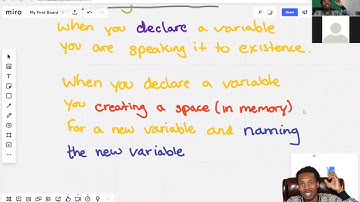 miro
My First Board
when you declare a variable
you are speaking it to existence.
When you declare a variable
You creating a space (in memory)
For a new variable and naming
the new variable